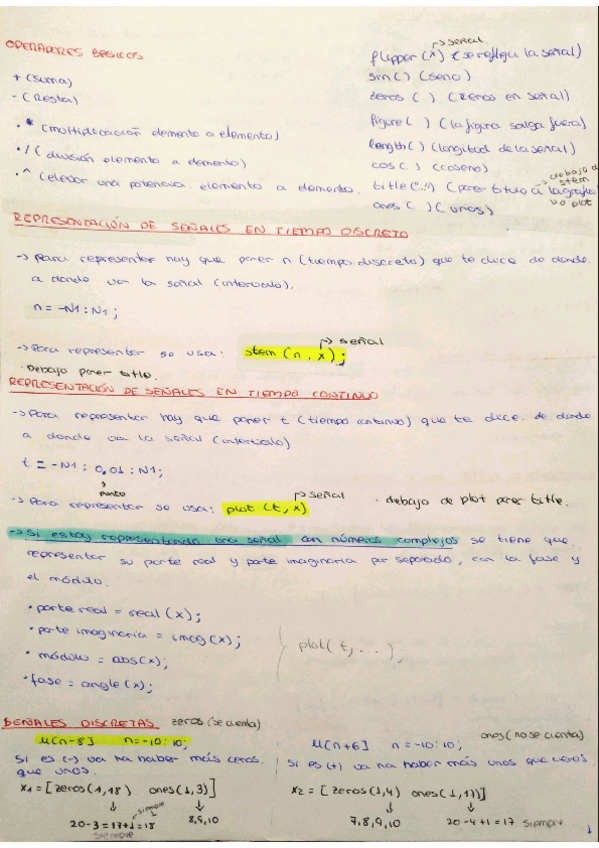 OPERADORES BÁSICOS
+ (suma)
- (Resta)
.* (multiplicación elemento a elemento)
./ (división elemento a elemento)
.^ (elevar una potencia elemento a elemento.
→ señal
flipper (x) (se refleja la señal)
sin ( ) (seno)
zeros ( ) (zeros en señal)
figure ( ) (la figura salga fuera)
length ( ) (longitud de la señal)
cos ( ) (coseno)
title ("..") (poner título a la gráfica
→ debajo de
stem
vo plot
ones ( ) (unos)
REPRESENTACIÓN DE SEÑALES EN TIEMPO DISCRETO
→ Para representar hay que poner n (tiempo discreto) que te dice de donde
a donde va la señal (intervalo).
n = -N1 : N1 ;
→ señal
→ Para representar se usa: stem (n, x) ;
· Debajo poner title.
REPRESENTACIÓN DE SEÑALES EN TIEMPO CONTINUO
→ Para representar hay que poner t (tiempo continuo) que te dice de donde
a donde va la señal (intervalo)
t = -N1 : 0,01 : N1 ;
punto
→ señal
→ Para representar se usa: plot (t, x) · debajo de plot poner title.
→ Si estoy representando una señal con números complejos se tiene que
representar su parte real y parte imaginaria por separado, con la fase y
el módulo.
· parte real = real (x) ;
· parte imaginaria = imag (x) ;
· módulo = abs(x) ;
· fase = angle (x) ;
plot( t, ... ) ;
SEÑALES DISCRETAS zeros (se cuenta)
u[n-8] n = -10 : 10 ;
Si es (-) va ha haber más ceros
que unos.
x1 = [zeros(1,18) ones(1,3)]
↓ ↓
20-3 = 17+1 = 18 8,9,10
→ siempre
siempre
ones (no se cuenta)
u[n+6] n = -10 : 10 ;
Si es (+) va ha haber más unos que ceros.
x2 = [ zeros(1,4) ones(1,17)]
↓ ↓
7,8,9,10 20-4+1 = 17 siempre
1